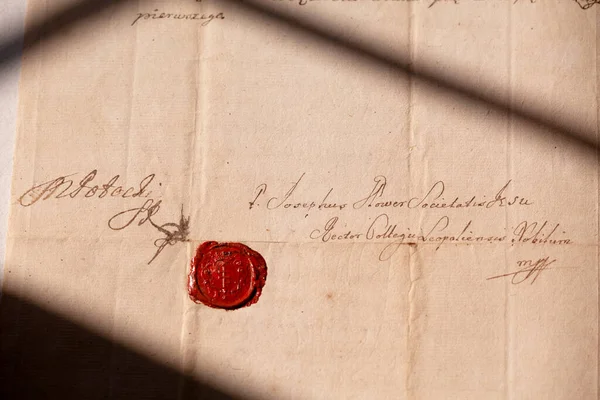 pierwszego
MPotocki
P. Josephus Hower Societatis Jesu
Rector Collegii Leopoliensis Nobilium
mpp